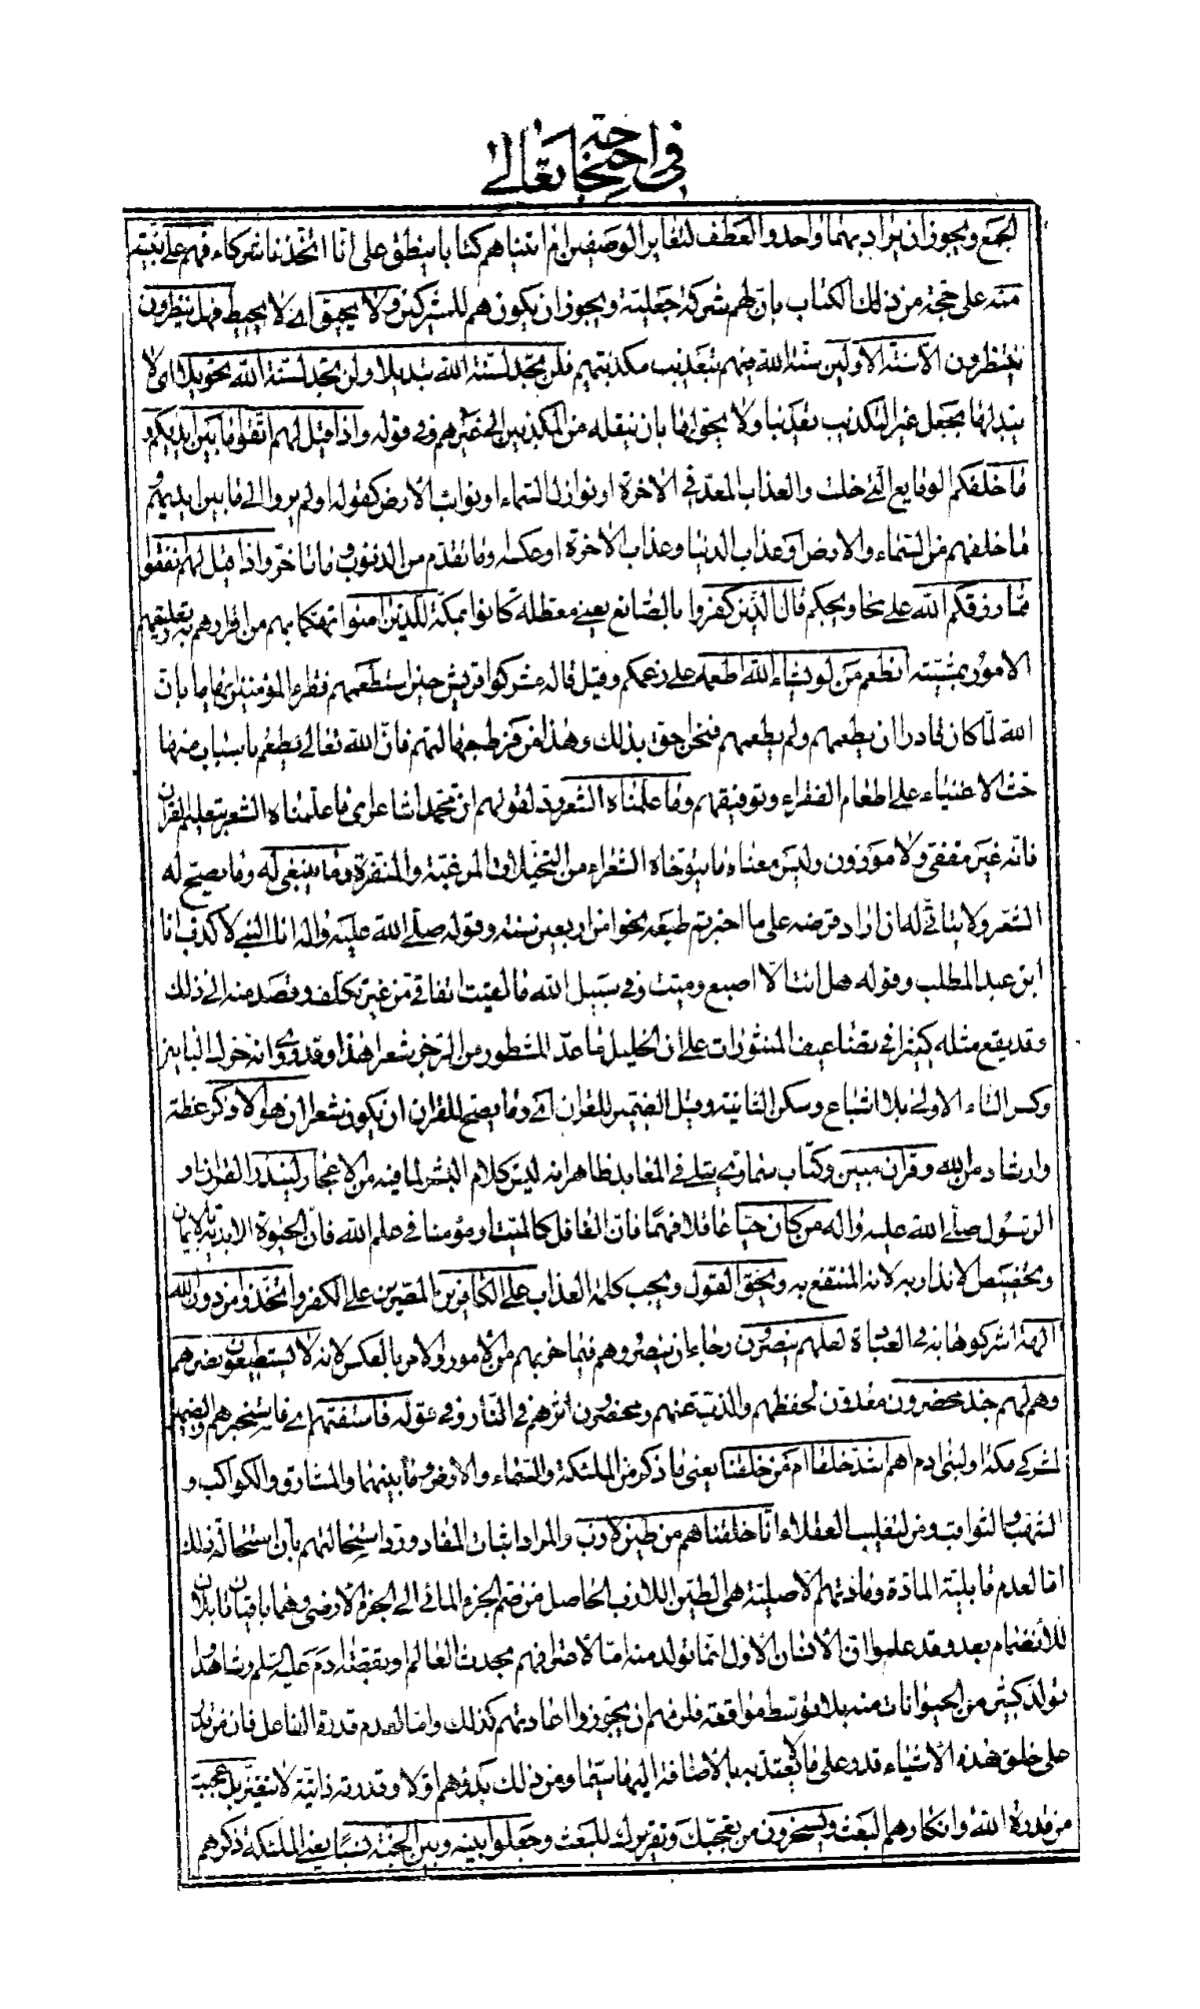 في احتجاجه تعالى
الجمع ويجوز ان يراد بهما واحد والعطف لتغاير الوصفين ام اتيناهم كتابا ينطق على انا اتخذنا شركاء فهم على بينة
منه على حجة من ذلك الكتاب بان لهم شركة جعلية ويجوز ان يكون هم للمشركين ولا يحيق اي لا يحيط فهل ينظرون
ينتظرون الا سنة الاولين سنة الله فيهم بتعذيب مكذبيهم فلن تجد لسنة الله تبديلا ولن تجد لسنة الله تحويلا اى لا
يبدلها بجعل غير التكذيب تعذيبا ولا يحولها بان ينقله من المكذبين الى غيرهم وفى قوله واذا قيل لهم اتقوا ما بين ايديكم و
ما خلفكم الوقايع التي خلت والعذاب المعد في الآخرة او نوازل السماء ونوائب الارض كقوله اولم يروا الى ما بين ايديهم و
ما خلفهم من السماء والارض او عذاب الدنيا وعذاب الآخرة او عكسه وما تقدم من الذنوب وما تاخر واذا قيل لهم انفقوا
مما رزقكم الله على محاويجكم قال الذين كفروا بالصانع يعني معطلة كانوا بمكة للذين امنوا تهكما بهم من اقرارهم به وتعليقهم
الامور بمشيته انطعم من لو يشاء الله اطعمه على زعمكم وقيل قاله مشركوا قريش حين استطعمهم فقراء المؤمنين ايهاما بان
الله لما كان قادرا ان يطعمهم ولم يطعمهم فنحن احق بذلك وهذا من فرط جهالتهم فان الله تعالى يطعم باسباب منها
حث الاغنياء على اطعام الفقراء وتوفيقهم وما علمناه الشعر رد لقولهم ان محمدا شاعر اى ما علمناه الشعر بتعليم القران
فانه غير مقفى ولا موزون وليس معناه ما يتوخاه الشعراء من التخيلات المرغبة والمنفرة وما ينبغي له وما يصح له
الشعر ولا يتاتى له ان اراد قرضه على ما اختبرتم طبعه نحوا من اربعين سنة وقوله صلى الله عليه واله انا النبي لا كذب انا
ابن عبد المطلب وقوله هل انت الا اصبع دميت وفي سبيل الله ما لقيت اتفاقي من غير تكلف وقصد منه الى ذلك
وقد يقع مثله كثيرا في تضاعيف المنثورات على ان الخليل ما عد المشطور من الرجز شعرا هذا وقد روي انه حرك البائين
وكسر التاء الاولى بلا اشباع وسكن الثانية وقيل الضمير للقران اي وما يصح للقران ان يكون شعرا ان هو الا ذكر عظة
وارشاد من الله وقران مبين وكتاب سماوي يتلى في المعابد ظاهر انه ليس كلام البشر لما فيه من الاعجاز لينذر القران او
الرسول صلى الله عليه واله من كان حيا عاقلا فهما فان الغافل كالميت او مؤمنا في علم الله فان الحيوة الابدية بالايمان
وتخصيص الانذار به لانه المنتفع به ويحق القول ويجب كلمة العذاب على الكافرين المصرين على الكفر واتخذوا من دون الله
الهة اشركوها به في العبادة لعلهم ينصرون رجاء ان ينصروهم فيما حزبهم من الامور والامر بالعكس لانه لا يستطيعون نصرهم
وهم لهم جند محضرون معدون لحفظهم والذب عنهم او محضرون اثرهم في النار وفي قوله فاستفتهم اي فاستخبرهم والضمير
لمشركي مكة او لبنى ادم اهم اشد خلقا ام من خلقنا يعنى ما ذكر من الملئكة والسماء والارض وما بينهما والمشارق والكواكب و
الشهب والثواقب ومن لتغليب العقلاء انا خلقناهم من طين لازب والمراد اثبات المعاد ورد استحالتهم بان استحالة ذلك
اما لعدم قابلية المادة ومادتهم الاصلية هى الطين اللازب الحاصل من ضم الجزء المائي الى الجزء الارضي وهما باقيان قابلان
للانضمام بعد وقد علموا ان الانسان الاول انما تولد منه اما لاعترافهم بحدث العالم او بقصة ادم عليه السلم وشاهدوا
تولد كثير من الحيوانات منه بلا توسط مواقعة فلزمهم ان يجوزوا اعادتهم كذلك واما لعدم قدرة الفاعل فان من قدر
على خلق هذه الاشياء قدر على ما لا يعتد به بالاضافة اليها سيما ومن ذلك بدؤهم اولا وقدرته ذاتية لا تتغير بل عجبت
من قدرة الله وانكارهم البعث ويسخرون من تعجبك وتقريرك للبعث وجعلوا بينه وبين الجنة نسبا يعني الملئكة ذكرهم